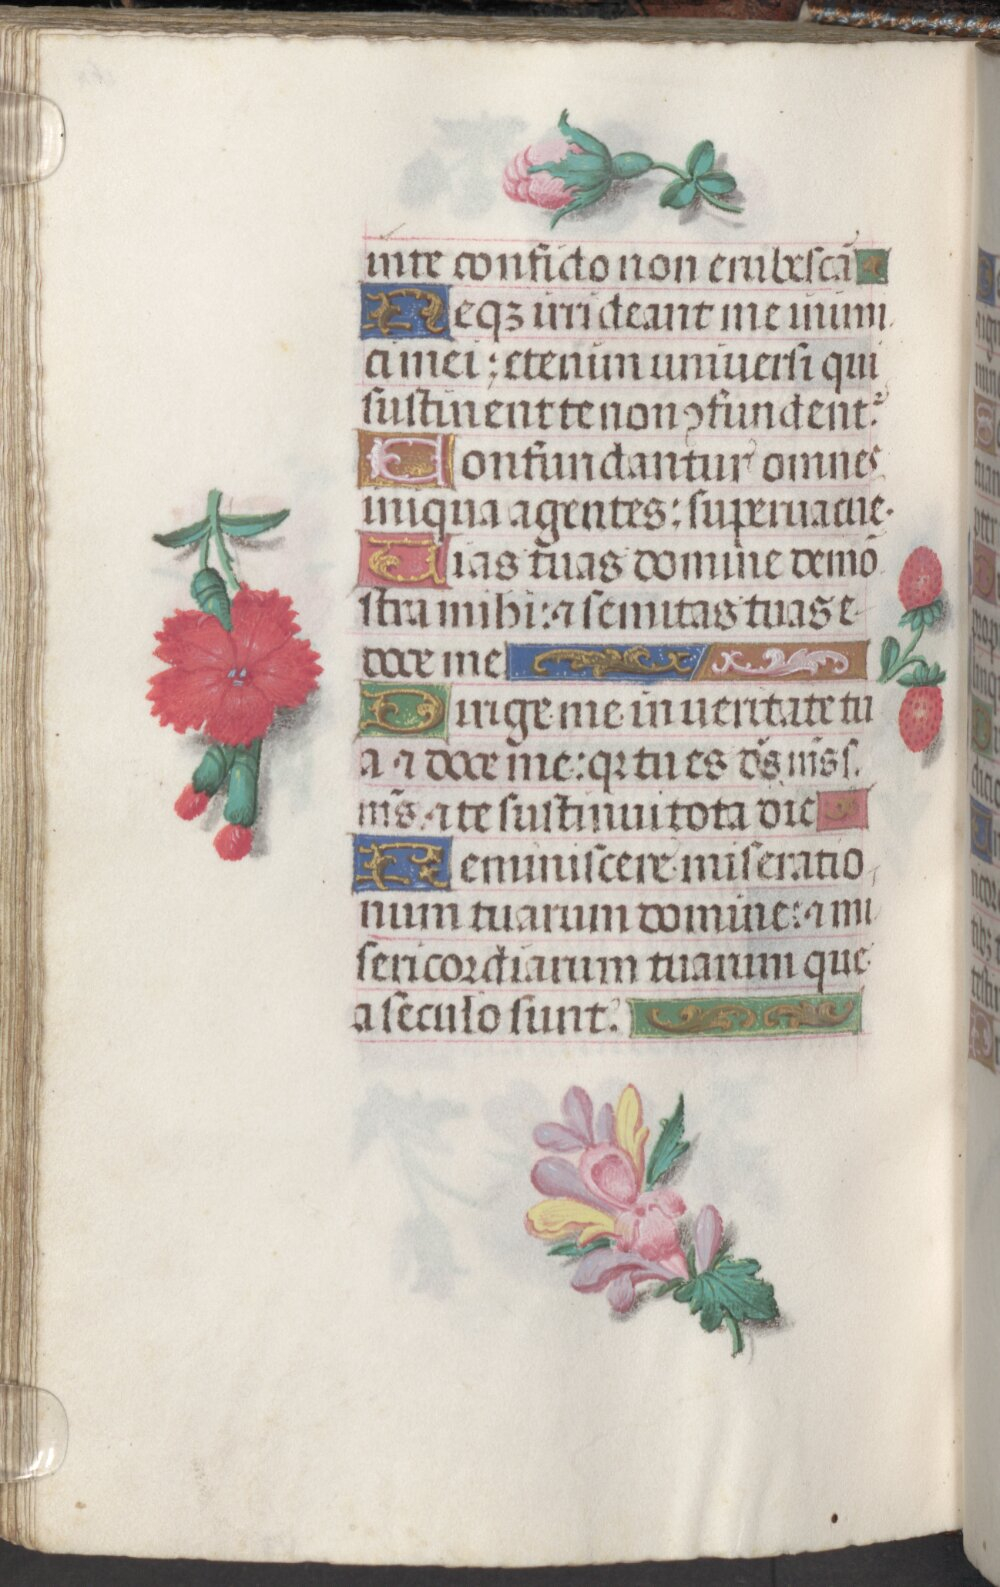 in te confido non erubescā
Neqꝫ irrideant me inimi
ci mei : etenim universi qui
sustinent te non ꝯfundentʳ
Confundantur omnes
iniqua agentes : supervacue.
Vias tuas domine demō
stra mihi : ⁊ semitas tuas e
doce me
Dirige me in veritate tu
a ⁊ doce me : qr tu es dē̄s mē̄s s.
nr̄s. ⁊ te sustinui tota die
Reminiscere miseratio
num tuarum domine : ⁊ mi
sericordiarum tuarum que
a seculo sunt.